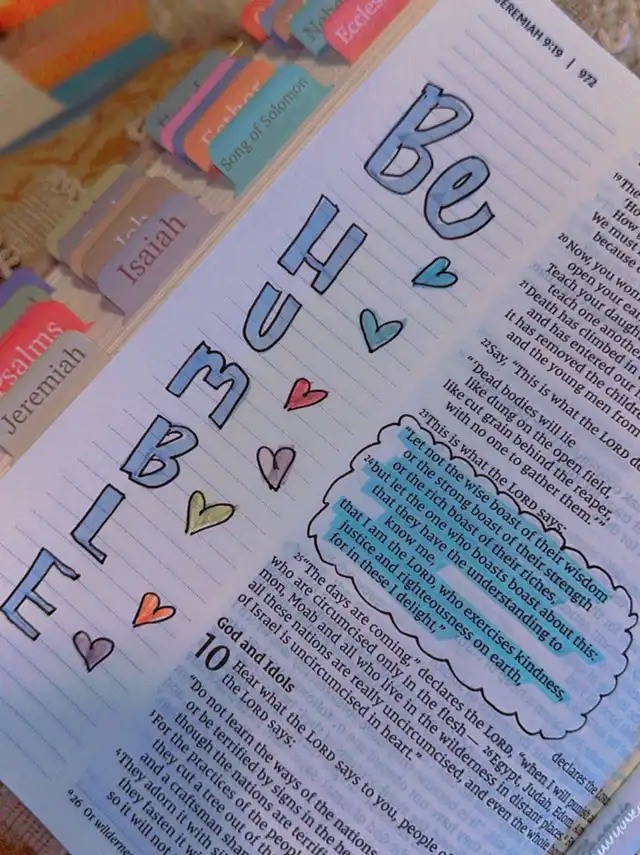 JEREMIAH 9:19 | 972
Eccles
Song of Solomon
Esther
Isaiah
Job
Psalms
Jeremiah
Be
HUMBLE
19
How
We must
because
20 Now, you wo
open your ea
Teach your daug
teach one anoth
21 Death has climbed
and has entered ou
it has removed the child
and the young men from
22 Say, "This is what the LORD d
"Dead bodies will lie
like dung on the open field,
like cut grain behind the reaper,
with no one to gather them.'"
23 This is what the LORD says:
"Let not the wise boast of their wisdom
or the strong boast of their strength
or the rich boast of their riches,
24 but let the one who boasts boast about this:
that they have the understanding to
know me,
that I am the LORD, who exercises kindness,
justice and righteousness on earth,
for in these I delight,"
declares the LORD.
25 "The days are coming," declares the LORD, "when I will punish a
who are circumcised only in the flesh— 26 Egypt, Judah, Edom, Am
mon, Moab and all who live in the wilderness in distant places.
all these nations are really uncircumcised, and even the whole
of Israel is uncircumcised in heart."
God and Idols
10 Hear what the LORD says to you, people o
the LORD says:
"Do not learn the ways of the nations
or be terrified by signs in the hea
though the nations are terrifie
3 For the practices of the peopl
they cut a tree out of the
and a craftsman shape
4 They adorn it with s
they fasten it wi
so it will not
a 26 Or wilderne